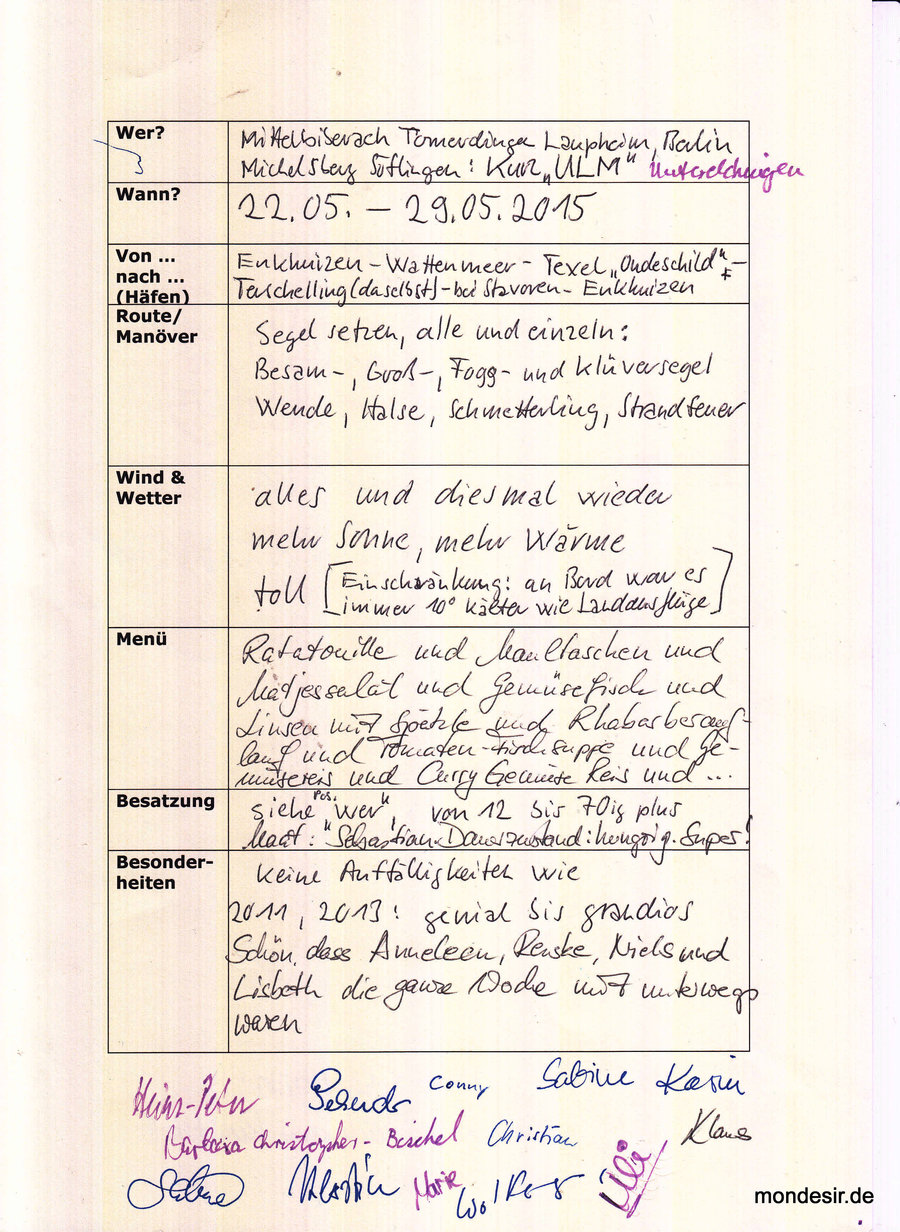 Wer?
Mittelbiberach Tomerdingen Laupheim, Berlin
Michelsberg Söflingen: Kurz „ULM"
Wann?
22.05. – 29.05.2015
Von ...
nach ...
(Häfen)
Enkhuizen – Wattenmeer – Texel „Oudeschild" –
Terschelling (daselbst) – bei Stavoren – Enkhuizen
Route/
Manöver
Segel setzen, alle und einzeln:
Besam-, Groß-, Fogg- und Klüversegel
Wende, Halse, Schmetterling, Strandfeuer
Wind &
Wetter
alles und diesmal wieder
mehr Sonne, mehr Wärme
toll [Einschränkung: an Bord war es
immer 10° kälter wie Landausflüge]
Menü
Ratatouille und Maultaschen und
Matjessalat und Gemüsefisch und
Linsen mit Spätzle und Rhabarberauf-
lauf und Tomaten-Fischsuppe und Ge-
müsereis und Curry Gemüse Reis und ...
Besatzung
siehe Pos. "Wer", von 12 bis 70ig plus
Maat: Sebastian. Dauerzustand: hungrig. Super!
Besonder-
heiten
keine Auffälligkeiten wie
2011, 2013: genial bis grandios
Schön, dass Anneleen, Renske, Niels und
Lisbeth die ganze Woche mit unterwegs
waren
Heinz-Peter Conny Sabine Karin
Barbara Christopher-Bischel Christian Klaus
Sabine Martin Marie Wolfgang Uli
mondesir.de